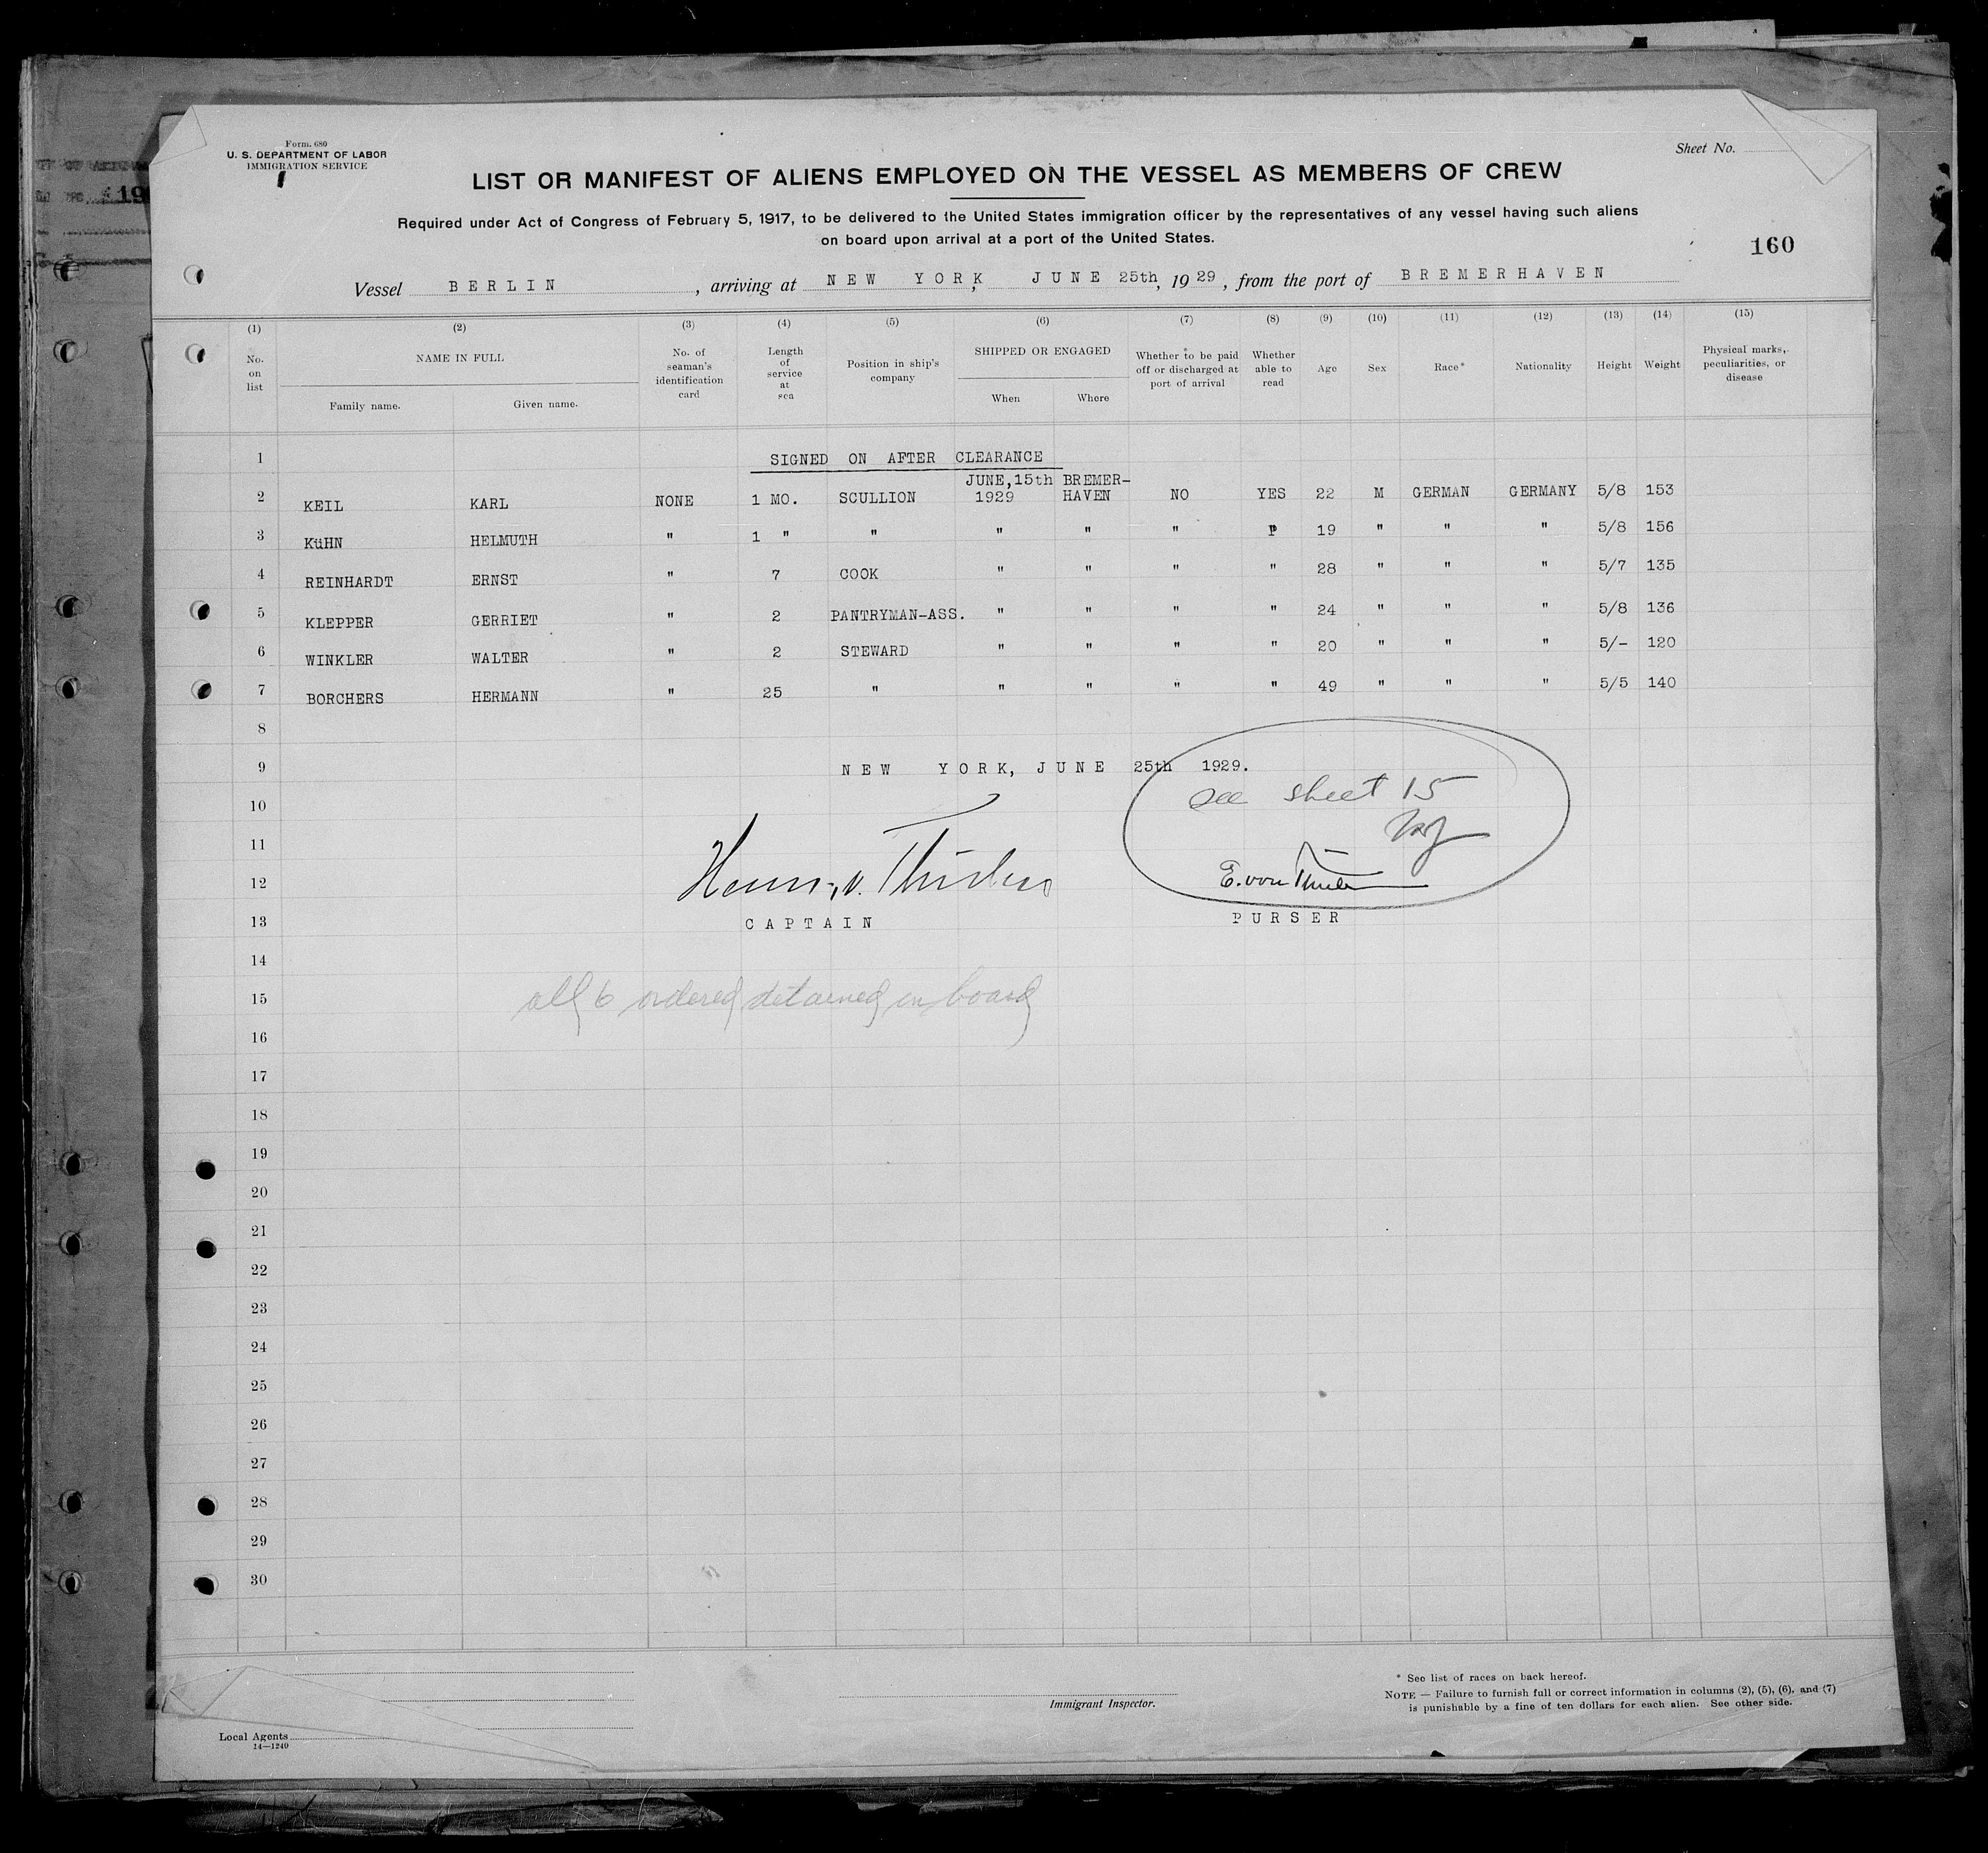 Form. 680
U. S. DEPARTMENT OF LABOR
IMMIGRATION SERVICE
Sheet No.
LIST OR MANIFEST OF ALIENS EMPLOYED ON THE VESSEL AS MEMBERS OF CREW
Required under Act of Congress of February 5, 1917, to be delivered to the United States immigration officer by the representatives of any vessel having such aliens
on board upon arrival at a port of the United States.
160
Vessel BERLIN, arriving at NEW YORK, JUNE 25th, 1929, from the port of BREMERHAVEN
(1) (2) (3) (4) (5) (6) (7) (8) (9) (10) (11) (12) (13) (14) (15)
No. on list
NAME IN FULL
Family name. Given name.
No. of seaman's identification card
Length of service at sea
Position in ship's company
SHIPPED OR ENGAGED
When Where
Whether to be paid off or discharged at port of arrival
Whether able to read
Age
Sex
Race*
Nationality
Height
Weight
Physical marks, peculiarities, or disease
1 SIGNED ON AFTER CLEARANCE
2 KEIL KARL NONE 1 MO. SCULLION JUNE,15th 1929 BREMER-HAVEN NO YES 22 M GERMAN GERMANY 5/8 153
3 KüHN HELMUTH " 1 " " " " " 19 " " " 5/8 156
4 REINHARDT ERNST " 7 COOK " " " " 28 " " " 5/7 135
5 KLEPPER GERRIET " 2 PANTRYMAN-ASS. " " " " 24 " " " 5/8 136
6 WINKLER WALTER " 2 STEWARD " " " " 20 " " " 5/- 120
7 BORCHERS HERMANN " 25 " " " " " 49 " " " 5/5 140
8
9 NEW YORK, JUNE 25th 1929.
10 see sheet 15
11
12 E. von
13 CAPTAIN PURSER
14
15 all 6 ordered detained on board
16
17
18
19
20
21
22
23
24
25
26
27
28
29
30
* See list of races on back hereof.
Immigrant Inspector.
NOTE — Failure to furnish full or correct information in columns (2), (5), (6), and (7)
is punishable by a fine of ten dollars for each alien. See other side.
Local Agents
14—1240